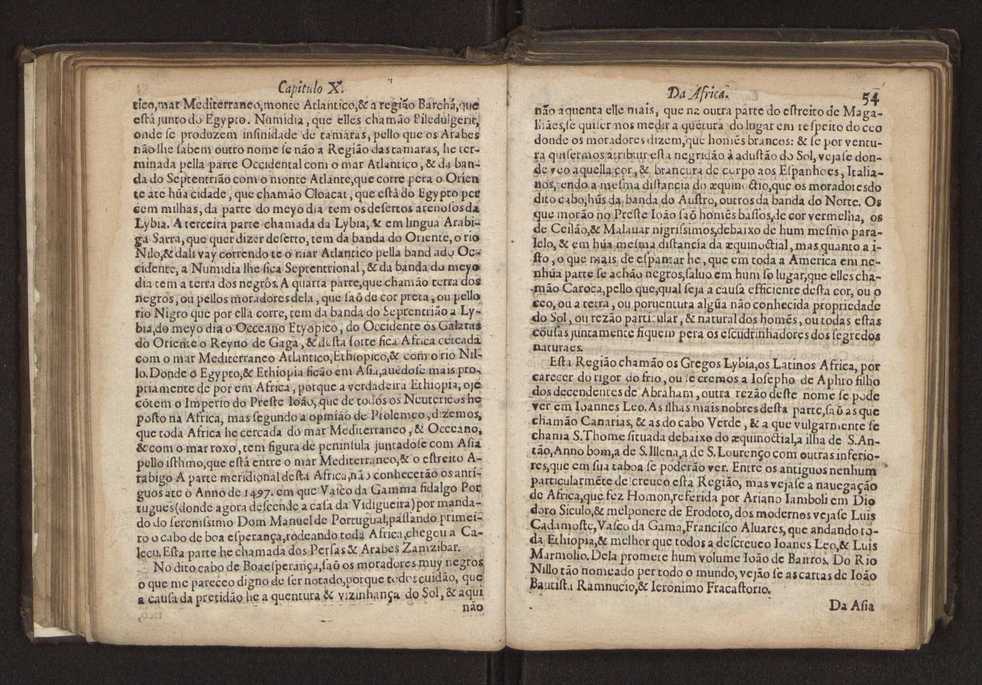 Capitulo X.
tico,mar Mediterraneo,monte Atlantico,& a região Barchá,que
está junto do Egypto. Numidia, que elles chamão Biledulgerit,
onde se produzem infinidade de tamaras, pello que os Arabes
não lhe sabem outro nome se não a Região das tamaras, he ter-
minada pella parte Occidental com o mar Atlantico, & da ban-
da do Septentrião com o monte Atlante,que corre pera o Orien
te ate hũa cidade, que chamão Cloacat, que está do Egypto per
cem milhas, da parte do meyo dia tem os desertos arenosos da
Lybia. A terceira parte chamada da Lybia, & em lingua Arabi-
ga Sarra,que quer dizer deserto, tem da banda do Oriente, o rio
Nilo,& dali vay correndo te o mar Atlantico pella band ado Oc-
cidente, a Numidia lhe fica Septentrional, & da banda do meyo
dia tem a terra dos negrõs. A quarta parte,que chamão terra dos
negros, ou pellos moradores dela, que saõ de cor preta, ou pello
rio Nigro que por ella corre, tem da banda do Septentrião a Ly-
bia,do meyo dia o Occeano Etyopico, do Occidente os Galatas
do Oriente o Reyno de Gaga, & desta sorte fica Africa cercada
com o mar Mediterraneo Atlantico,Ethiopico,& com o rio Nil-
lo. Donde o Egypto,& Ethiopia ficão em Asia,auêdose mais pro-
priamente de por em Africa, porque a verdadeira Ethiopia, oje
cõtem o Imperio do Preste Ioão,que de todos os Neutericos he
posto na Africa, mas segundo a opinião de Ptolemeo,dizemos,
que toda Africa he cercada do mar Mediterraneo, & Occeano,
& com o mar roxo, tem figura de peninsula juntadose com Asia
pello isthmo,que está entre o mar Mediterraneo,& o estreito A-
rabigo A parte meridional desta Africa,não conhecerão os anti-
guos ate o Anno de 1497. em que Vasco da Gamma fidalgo Por
tugues(donde agora descende a casa da Vidigueira)por manda-
do do serenissimo Dom Manuel de Portugual,passando primei-
ro o cabo de boa esperança,rodeando toda Africa,chegou a Ca-
lecu. Esta parte he chamada dos Persas & Arabes Zamzibar.
No dito cabo de Boaesperança,saõ os moradores muy negros
o que me pareceo digno de ser notado,porque todos cuidão, que
a causa da pretidão he a quentura & vizinhança do Sol, & aqui
não
Da Africa.
54
não aquenta elle mais, que na outra parte do estreito de Maga-
lhães,se quisermos medir a quẽtura do lugar em respeito do ceo
donde os moradores dizem,que homẽs brancos: & se por ventu-
ra quisermos atribuir esta negridão à adustão do Sol, vejase don-
de veo aquella cor, & brancura de corpo aos Espanhoes, Italia-
nos,sendo a mesma distancia do æquinoctio,que os moradores do
dito cabo,hũs da banda do Austro, outros da banda do Norte. Os
que morão no Preste Ioão saõ homẽs bassos,de cor vermelha, os
de Ceilão,& Malauar nigrissimos,debaixo de hum mesmo para-
lelo, & em hũa mesma distancia da æquinoctial, mas quanto a i-
sto, o que mais de espantar he, que em toda a America em ne-
nhũa parte se achão negros,saluo em hum so lugar,que elles cha-
mão Caroca,pello que,qual seja a causa efficiente desta cor, ou o
ceo, ou a terra, ou porventura algũa não conhecida propriedade
do Sol, ou rezão particular, & natural dos homẽs, ou todas estas
cousas juntamente fiquem pera os escudrinhadores dos segredos
naturaes.
Esta Região chamão os Gregos Lybia,os Latinos Africa, por
carecer do rigor do frio, ou se cremos a Iosepho de Aphro filho
dos decendentes de Abraham, outra rezão deste nome se pode
ver em Ioannes Leo. As ilhas mais nobres desta parte,saõ as que
chamão Canarias, & as do cabo Verde, & a que vulgarmente se
chama S.Thome situada debaixo do æquinoctial,a ilha de S.An-
tão,Anno bom,a de S.Illena,a de S.Lourenço com outras inferio-
res,que em sua taboa se poderão ver. Entre os antiguos nenhum
particularmẽte descreueo esta Região, mas vejase a nauegação
de Africa,que fez Homon,referida por Ariano Iamboli em Dio
doro Siculo,& melponere de Erodoto, dos modernos vejase Luis
Cadamoste,Vasco da Gama,Francisco Aluares, que andando to-
da Ethiopia,& melhor que todos a descreueo Ioanes Leo,& Luis
Marmolio. Dela promete hum volume Ioão de Barros. Do Rio
Nillo tão nomeado per todo o mundo, vejão se as cartas de Ioão
Bautista Ramnucio,& Ieronimo Fracastorio.
Da Asia